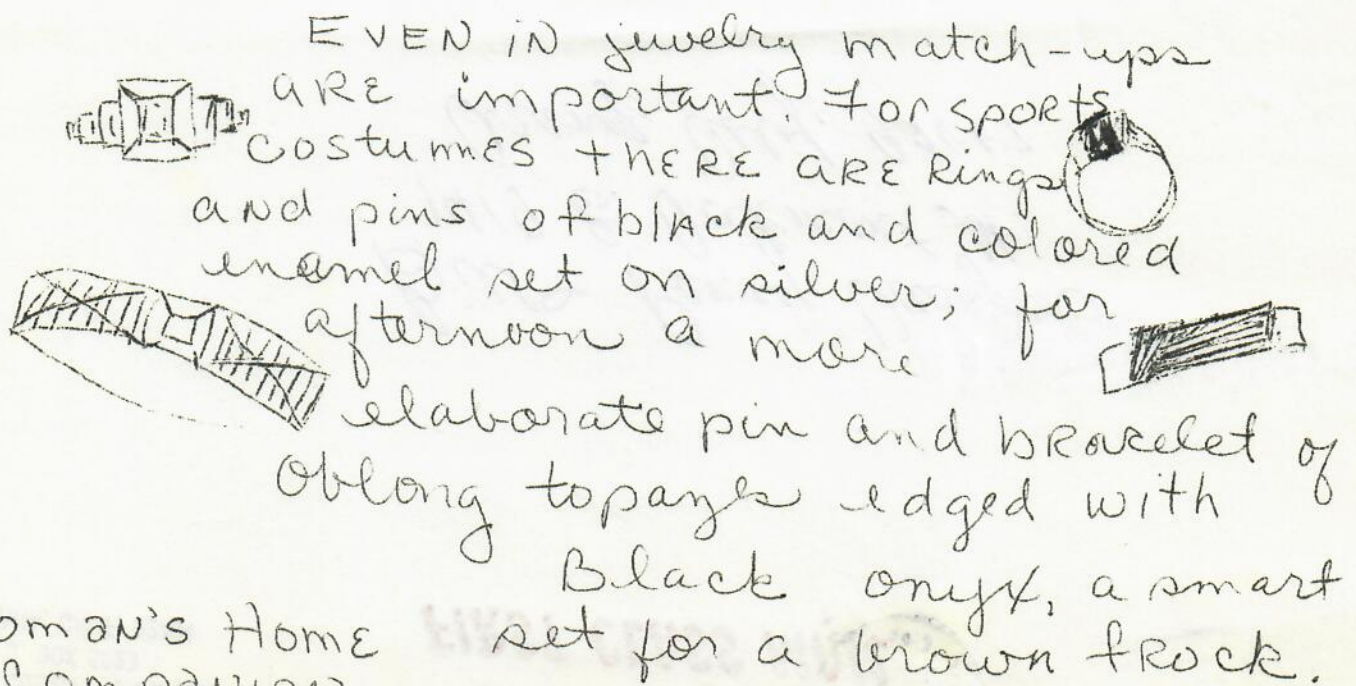 EVEN IN jewelry match-ups
ARE important. For sports
costumes there are Rings
and pins of black and colored
enamel set on silver; for
afternoon a more
elaborate pin and bracelet of
oblong topazes edged with
Black onyx, a smart
set for a brown frock.
oman's Home
Companion